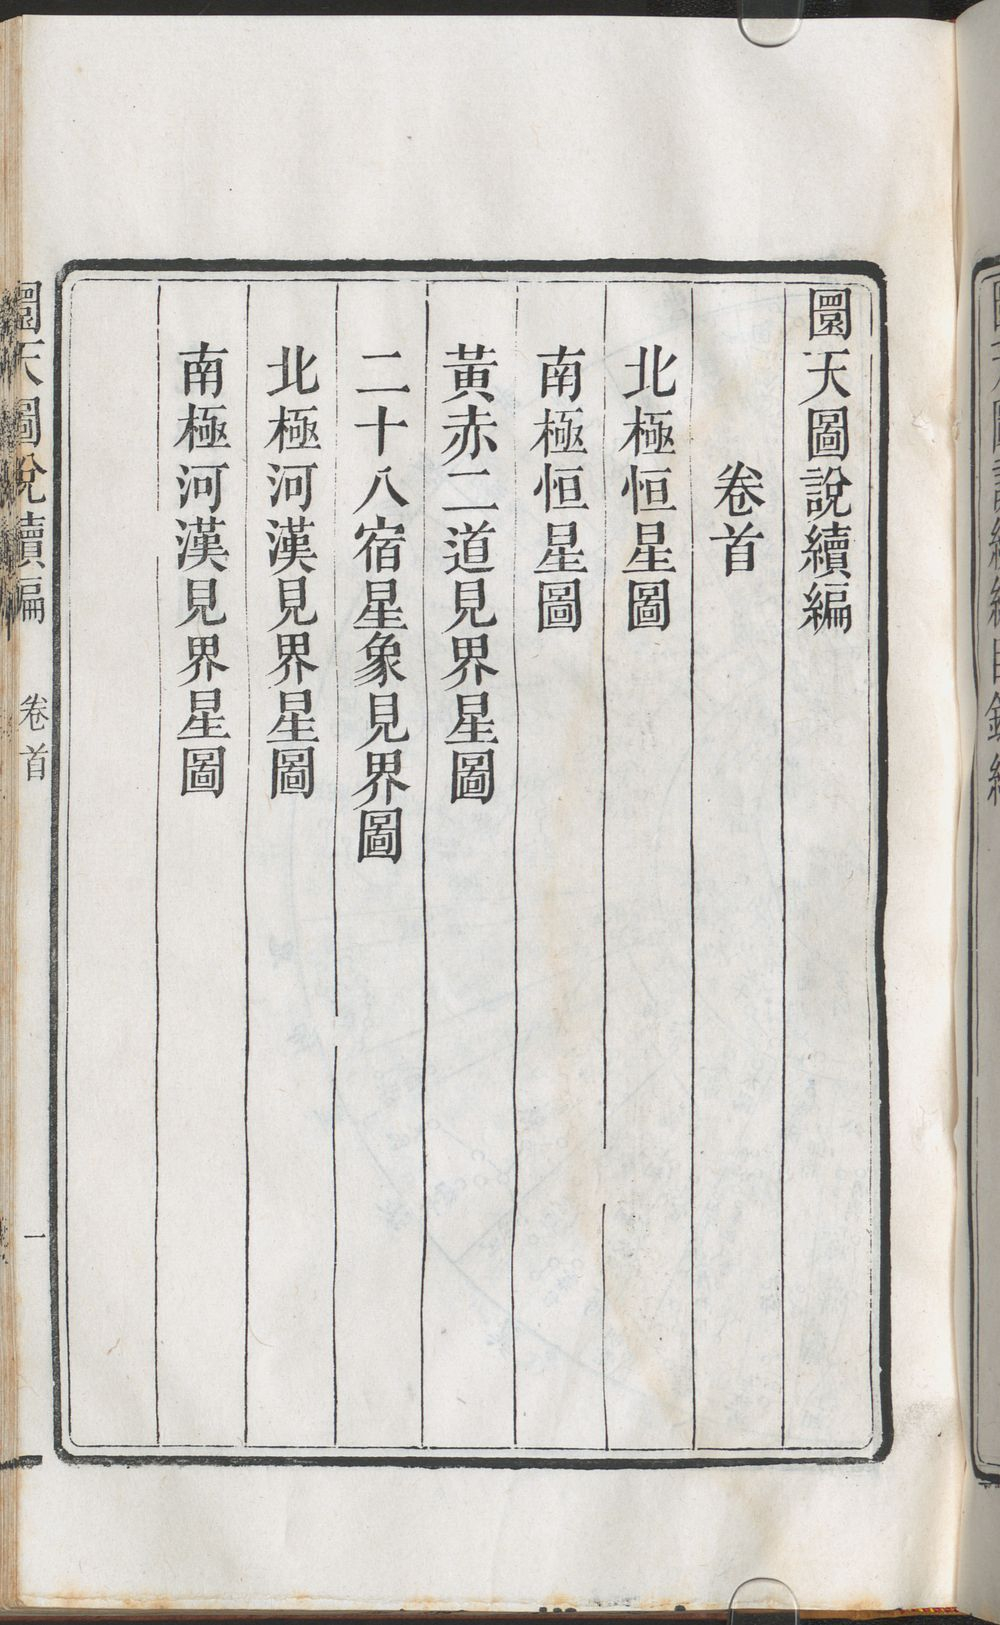 圜天圖說續編
卷首
北極恒星圖
南極恒星圖
黃赤二道見界星圖
二十八宿星象見界圖
北極河漢見界星圖
南極河漢見界星圖
圜天圖說續編 卷首 一